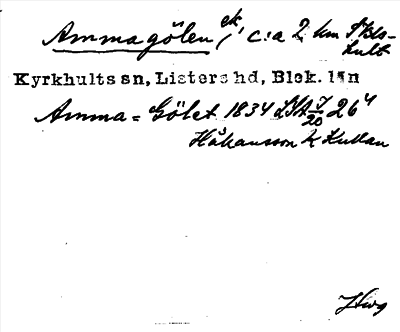 Ammagölen ek, c:a 2 km
kult
Kyrkhults sn, Listers hd, Blek. län
Amma = Gölet 1834 LSA J/20 26⁴
Håkansson K
Hwg